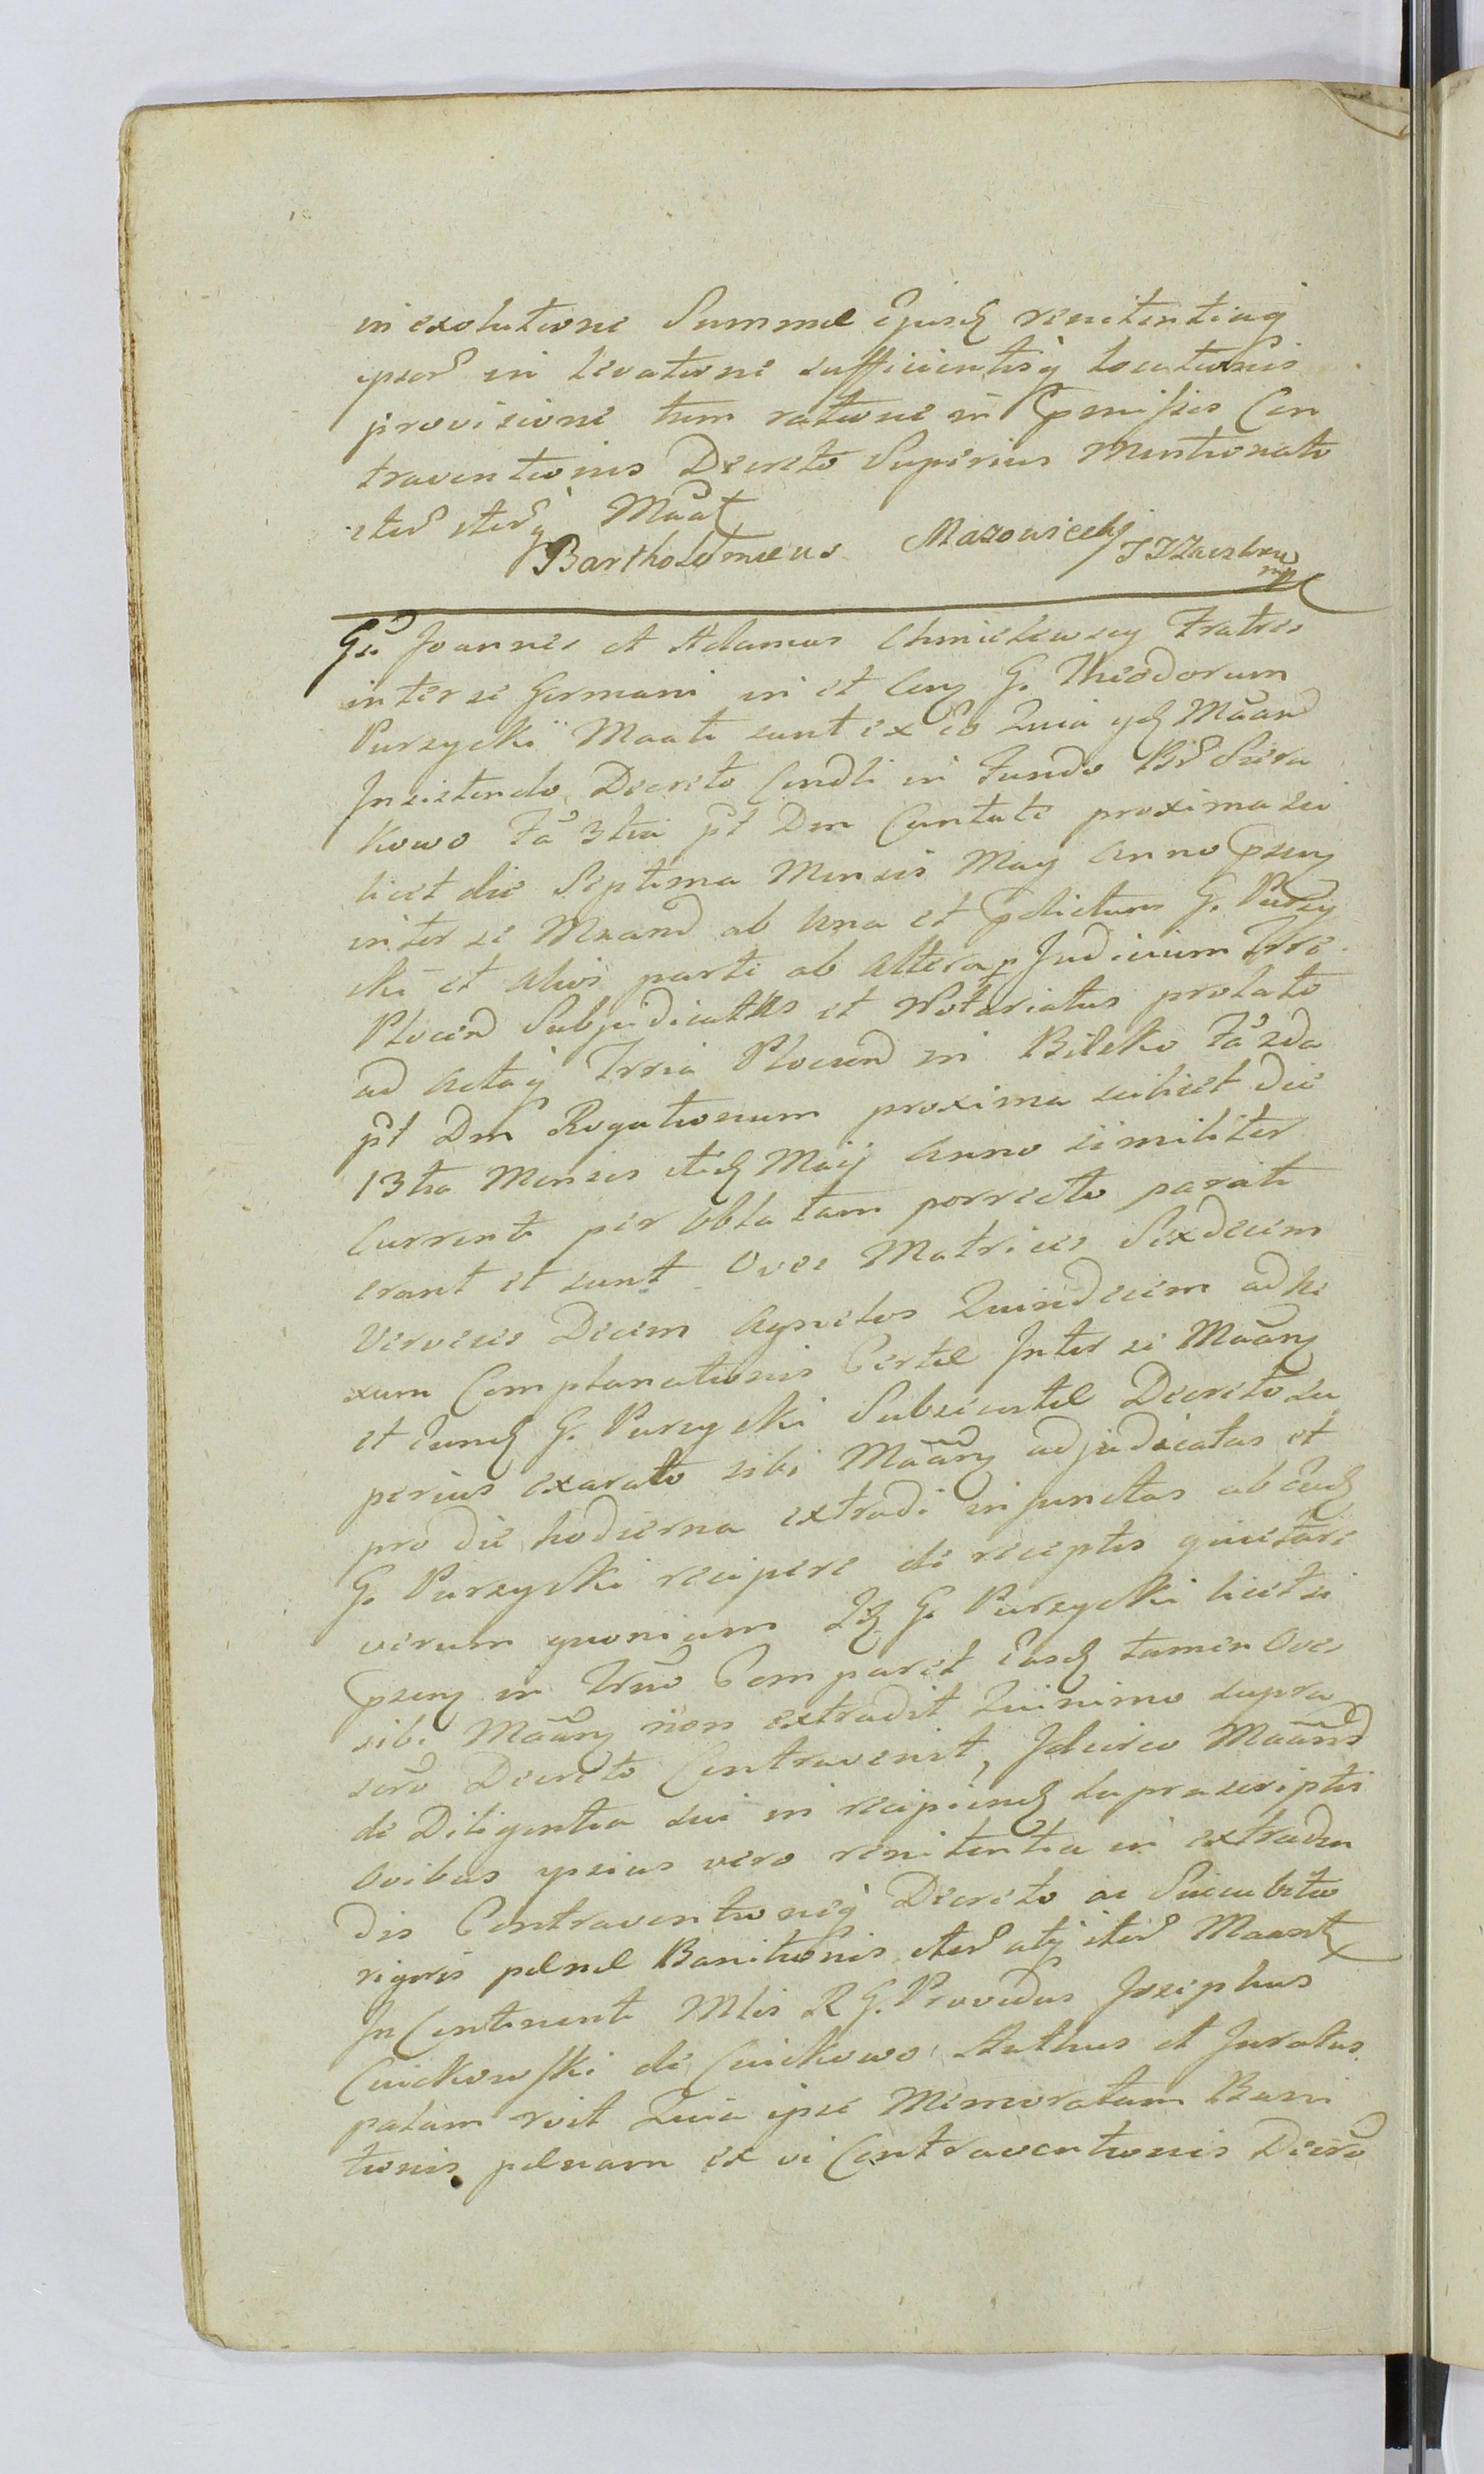 in exolutione Summæ Ejusd renitentiaq
ipsor in levatione sufficientisq locutionis
provisione tum ratione in Præmissis Con
traventionis Decreto Superius Mentionato
iter iterq Maat
Bartholomæus Mazowiecki
Gsi Joannes et Adamus Chmielewscy Fratres
inter se Germani in et Con G. Theodorum
Purzycki Maati sunt ex eo Quia ijd Maand
Insistendo Decreto Condli in Fundo Br Siera
kowo Fa 3tia pt Dm Cantate proxima sci
licet die Septima Mensis Maij Anno præn
inter se Maand ab una et prædictum G. Purzy
cki et alios parte ab altera p Judicium Trre
Plocen Subjudicatus et Notariatus prolato
ad Actaq Trria Plocen in Bielsko Fa 2da
pt Dm Rogationum proxima scilicet die
13tia Mensis itid Maij Anno similiter
Currenti per oblatam porrecto parati
erant et sunt Oves Matrices Sexdecim
Verveces Decem Agnelos Quindecim ad ne
xum Complanationis Certæ Inter se Maan
et eund G. Purzycki Subsecutæ Decreto su
perius exarato sibi Maan adjudicatas et
pro die hodierna extradi injunctas ab eod
G. Purzycki recipere de receptis quietare
verum quoniam Id G. Purzycki licet se
præn in Trmo Comparet easd tamen Oves
sibi Maan non extradit Quinimo supra
scro Decreto Contravenit, Idcirco Maand
de Diligentia sui in recipiend suprascriptis
Ovibus ipsius vero renitentia in extraden
dis Contraventioneq Decreto ac Succubitu
rigoris pænæ Banitionis iter atq iter Maant
In Continenti Mlis R G. Providus Josephus
Cwickowski de Cwickowo Authus et Juratus
palam rvit Quia ipse Memoratam Bani
tionis pænam ex vi Contraventionis Decro